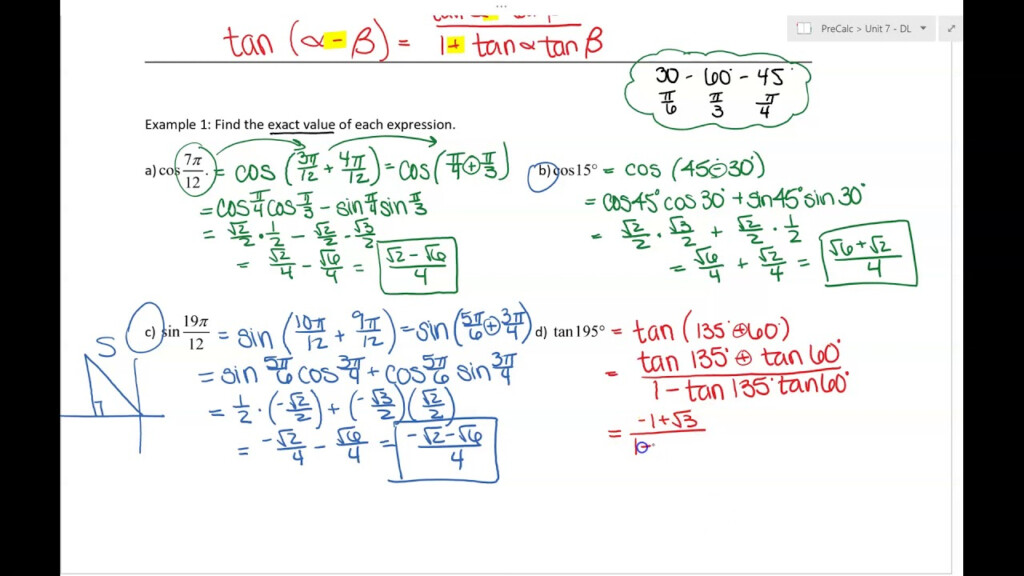 PreCalc > Unit 7 - DL
tan (α - β) = 
1 + tan α tan β
30 - 60° - 45°
π/6 π/3 π/4
Example 1: Find the exact value of each expression.
a) cos 7π/12 = cos (3π/12 + 4π/12) = cos (π/4 + π/3)
= cos π/4 cos π/3 - sin π/4 sin π/3
= √2/2 · 1/2 - √2/2 · √3/2
= √2/4 - √6/4 = √2 - √6/4
b) cos 15° = cos (45 - 30°)
= cos 45° cos 30° + sin 45° sin 30°
= √2/2 · √3/2 + √2/2 · 1/2
= √6/4 + √2/4 = √6 + √2/4
c) sin 19π/12 = sin (10π/12 + 9π/12) = sin (5π/6 + 3π/4)
S
= sin 5π/6 cos 3π/4 + cos 5π/6 sin 3π/4
= 1/2 · (-√2/2) + (-√3/2)(√2/2)
= -√2/4 - √6/4 = -√2 - √6/4
d) tan 195° = tan (135° + 60°)
= tan 135° + tan 60°/1 - tan 135° tan 60°
= -1 + √3/1 -